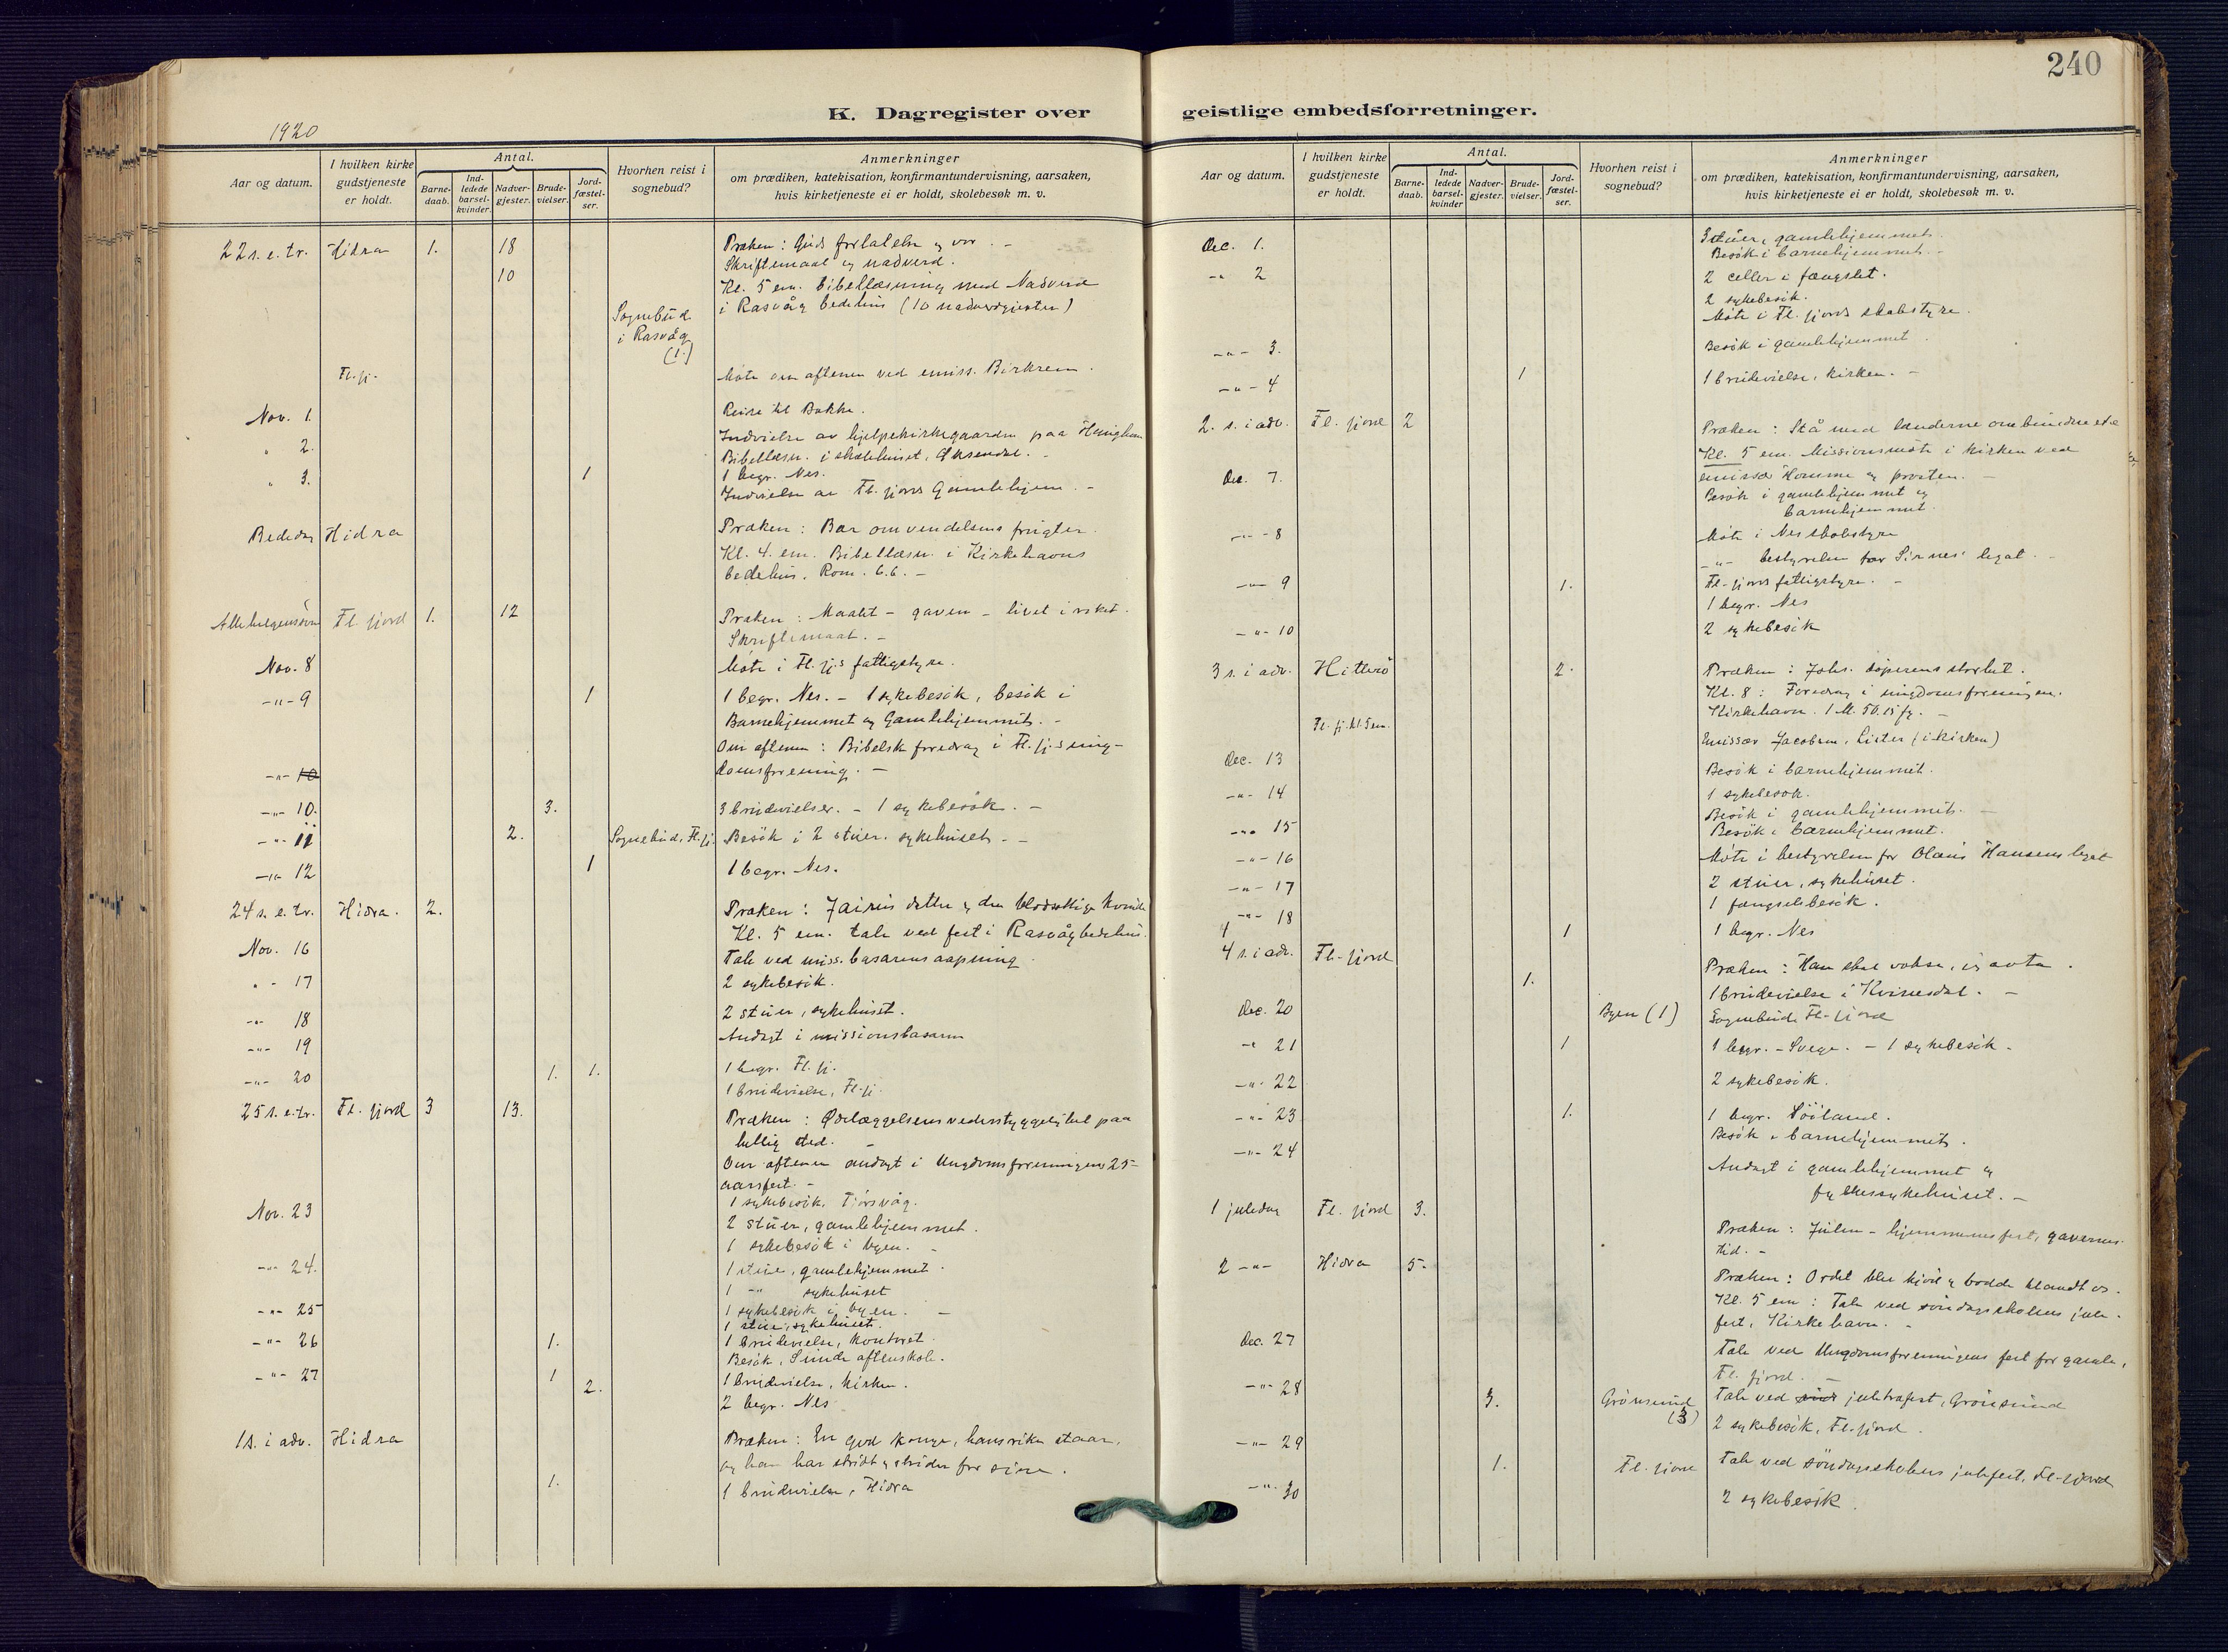 240
K. Dagregister over geistlige embedsforretninger.
1920
Aar og datum.
I hvilken kirke gudstjeneste er holdt.
Antal.
Barne-daab.
Ind-ledede barsel-kvinder.
Nadver-gjester.
Brude-vielser.
Jord-fæstel-ser.
Hvorhen reist i sognebud?
Anmerkninger
om prædiken, katekisation, konfirmantundervisning, aarsaken,
hvis kirketjeneste ei er holdt, skolebesøk m. v.
22 s. e. tr. Hidra 1. 18 Præken: Guds forlatelse og vor. -
Skriftemaal og nadverd.
10 Kl. 5 em. bibellæsning med Nadverd
i Rasvåg bedehus (10 nadverdgjester)
Sognebud
i Rasvåg
(1.)
Fl.fj. Møte om aftenen ved emiss. Birkrem.
Nov. 1. Reise til Bakke.
" 2. Indvielse av hjelpekirkegaarden paa
Bibellæsn. i skolehuset,
" 3. 1 1 begr. Nes.
Indvielse av Fl.fjords Gamlehjem. -
Bededag Hidra Præken: Bær omvendelsens frugter.
Kl. 4. em. Bibellæsn. i Kirkehavns
bedehus. Rom. 6.6. -
Allehelgensdn Fl.fjord 1. 12 Præken: Maalet - gaven - livet i
Skriftemaal. -
Nov. 8 Møte i Fl.fj.s fattigstyre.
-"- 9 1 1 begr. Nes. - 1 sykebesøk, besøk i
Barnehjemmet og Gamlehjemmet. -
Om aftenen: Bibelsk foredrag i Fl.fj.s ung-
domsforening. -
-"- 10
-"- 10. 3. 3 brudevielser. - 1 sykebesøk. -
-"- 11 2. Sognebud. Fl.fj. Besøk i 2 stuer. sykehuset. -
-"- 12 1 1 begr. Nes.
24 s. e. tr. Hidra. 2. Præken: Jairus datter og den blodsottige kvinde
Kl. 5 em. tale ved fest i Rasvåg bedehus.
Nov. 16 Tale ved miss.basarens aapning.
" - 17 2 sykebesøk.
-"- 18 2 stuer, sykehuset.
-"- 19 Andagt i missionsbasaren
-"- 20 1. 1. 1 begr. Fl.fj.
1 brudevielse, Fl.fj.
25 s. e. tr. Fl.fjord 3 13. Præken: Ødelæggelsens vederstyggelighet paa
hellig sted. -
Om aftenen andagt i Ungdomsforeningens 25-
aarsfest. -
Nov. 23 1 sykebesøk, Tjørsvåg.
2 stuer, gamlehjemmet.
1 sykebesøk i byen. -
-"- 24. 1 stue, gamlehjemmet.
1 -"- sykehuset
-"- 25 1 sykebesøk i byen. -
1 stue, sykehuset.
-"- 26 1. 1 brudevielse, kontoret.
Besøk, Sunde aftenskole.
-"- 27 1 1 brudevielse, kirken.
2. 2 begr. Nes
1 s. i adv. Hidra Præken: En god konge, hans rike staar,
og han har stridt og strider for sine.
1. 1 brudevielse, Hidra
Aar og datum.
I hvilken kirke gudstjeneste er holdt.
Antal.
Barne-daab.
Ind-ledede barsel-kvinder
Nadver-gjester.
Brude-vielser.
Jord-fæstel-ser.
Hvorhen reist i sognebud?
Anmerkninger
om prædiken, katekisation, konfirmantundervisning, aarsaken,
hvis kirketjeneste ei er holdt, skolebesøk m. v.
Dec. 1. 3 stuer, gamlehjemmet.
Besøk i barnehjemmet. -
-"- 2 2 celler i fængslet.
2 sykebesøk.
Møte i Fl.fjords skolestyre.
-"- 3. Besøk i gamlehjemmet.
-"- 4 1 1 brudevielse, kirken. -
2. s. i adv. Fl.fjord 2 Præken: Stå med lenderne ombundne
Kl. 5 em. Missionsmøte i kirken ved
emissær Homme og prosten. -
Dec. 7. Besøk i gamlehjemmet og
barnehjemmet.
-"- 8 Møte i Nes skolestyre
-"- bestyrelsen for Sirnes' legat. -
-"- 9 1. Fl.fjords fattigstyre. -
1 begr. Nes
-"- 10 2 sykebesøk
3 s. i adv. Hitterö 2. Præken: Johs. døperens storhet.
Kl. 8: Foredrag i ungdomsforeningen.
Kirkehavn. 1 M. 50.15 fg. -
Fl.fj. kl. 5 em. Emissær Jacobsen, Lister (i kirken)
Dec. 13 Besøk i barnehjemmet.
-"- 14 1 sykebesøk.
Besøk i gamlehjemmet. -
-"- 15 Besøk i barnehjemmet.
-"- 16 Møte i bestyrelsen for Olaus Hansens legat
-"- 17 2 stuer, sykehuset.
-"- 18 1 fængselsbesøk.
1 1 begr. Nes
4 s. i adv. Fl.fjord Præken: Han skal vokse, jeg avta.
1. 1 brudevielse i Kvinesdal. -
Dec. 20 Byen (1) Sognebud. Fl.fjord
-" 21 1 1 begr. - Svege. - 1 sykebesøk.
-"- 22 2 sykebesøk.
-"- 23 1. 1 begr. Lööland.
Besøk i barnehjemmet.
-"- 24 Andagt i gamlehjemmet og
fylkessykehuset. -
1 juledag Fl.fjord 3. Præken: Julen - hjemmenes fest, gavernes
tid. -
2 -"- Hidra 5. Præken: Ordet blev kjød og bodde blandt os.
Kl. 5 em: Tale ved søndagsskolens jule-
fest, Kirkehavn. -
Dec. 27 Tale ved Ungdomsforeningens fest for gamle,
Fl.fjord. -
-"- 28 3. Grönsund (3) Tale ved juletrefest, Grönsund
2 sykebesøk, Fl.fjord.
-"- 29 1. Fl.fjord Tale ved söndagsskolens julefest, Fl.fjord
-"- 30 2 sykebesøk.